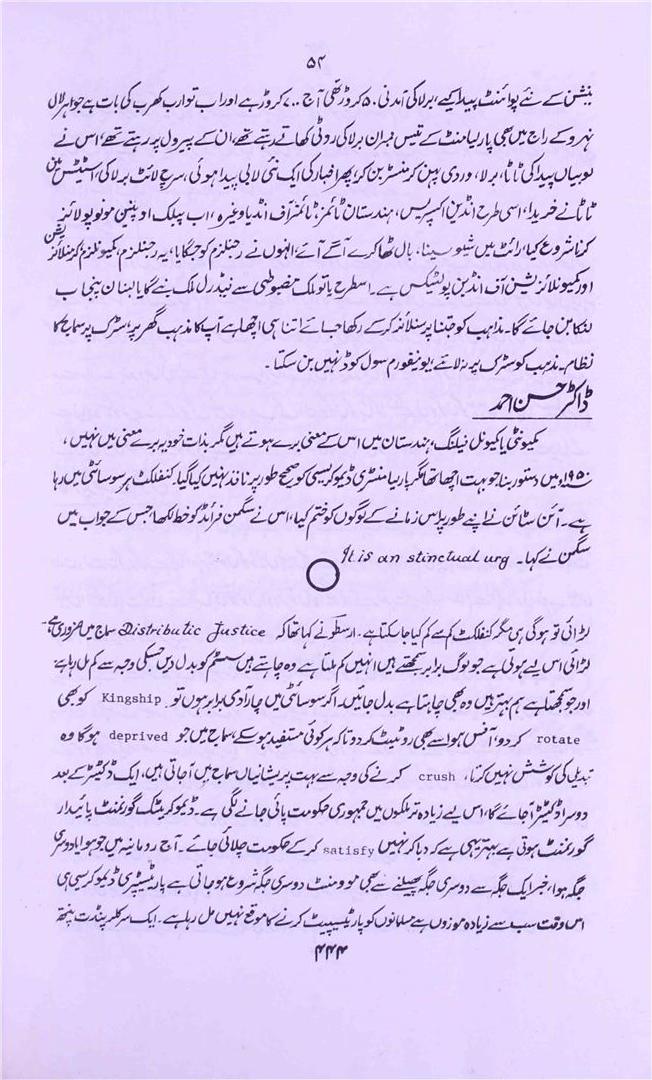 ۵۴
نیشن کے نئے پوائنٹ پیدا کیے، برلا کی آمدنی ۵۰ کروڑ تھی آج ۷۰۰ کروڑ ہے اور اب تو ارب کھرب کی بات ہے جواہر لال
نہرو کے راج میں بھی پارلیامنٹ کے تیس ممبران برلا کی روٹی کھاتے رہتے تھے، ان کے پیرول پر رہتے تھے، اس نے
لوبیاں پیدا کی ٹاٹا، برلا، وردی پہن کر منسٹر بن کر، پھر اخبار کی ایک نئی لابی پیدا ہوئی، سرچ لائٹ برلا کی، اسٹیٹس مین
ٹاٹا نے خریدا، اسی طرح انڈین اکسپریس، ہندستان ٹائمز، ٹائمز آف انڈیا وغیرہ، اب پبلک اوپینین مونوپولائز
کرنا شروع کیا، رائٹ میں شیو سینا، بال ٹھاکرے آگے آئے، انہوں نے رجنلزم کو جگایا، یہ رجنلزم، کمیونلزم کرمنلائزیشن
اور کمیونلائزیشن آف انڈین پولٹیکس ہے۔ اسطرح یا تو ملک مضبوطی سے فیڈرل ملک بنے گا یا لبنان پنجاب
لنکا بن جائے گا۔ مذاہب کو جتنا پرسنلائز کر کے رکھا جائے اتنا ہی اچھا ہے آپ کا مذہب گھر پر، سڑک پر سماج کا
نظام۔ مذہب کو سڑک پر نہ لائے یونیفورم سول کوڈ نہیں بن سکتا۔
ڈاکٹر حسن احمد
کمیونٹی یا کمیونل فیلنگ، ہندستان میں اس کے معنی برے ہوتے ہیں مگر بذات خود یہ برے معنی میں نہیں،
۱۹۵۰ء میں دستور بنا جو بہت اچھا تھا مگر پارلیامنٹری ڈیموکریسی کو صحیح طور پر نافذ نہیں کیا گیا۔ کنفلکٹ ہر سوسائٹی میں رہا
ہے۔ آئن سٹائن نے اپنے طور پر اس زمانے کے لوگوں کو ختم کیا، اس نے سگمن فرائڈ کو خط لکھا، جس کے جواب میں
سگمن نے کہا۔ It is an stinctual urg
لڑائی تو ہوگی ہی مگر کنفلکٹ کم سے کم کیا جا سکتا ہے۔ ارسطو نے کہا تھا کہ Distributic Justice سماج میں ضروری ہے۔
لڑائی اس لیے ہوتی ہے جو لوگ برابر سمجھتے ہیں انہیں کم ملتا ہے وہ چاہتے ہیں سسٹم کو بدل دیں جسکی وجہ سے کم مل رہا ہے
اور جو سمجھتا ہے ہم بہتر ہیں وہ بھی چاہتا ہے بدل جائیں۔ اگر سوسائٹی میں چار آدمی برابر ہوں تو Kingship کو بھی
rotate کر دو، آفس ہوا سے بھی روٹیٹ کر دو تاکہ ہر کوئی مستفید ہو سکے، سماج میں جو deprived ہوگا وہ
تبدیلی کی کوشش نہیں کرتا، crush کرنے کی وجہ سے بہت پریشانیاں سماج میں آ جاتی ہیں، ایک ڈکٹیٹر کے بعد
دوسرا ڈکٹیٹر آ جائے گا، اس لیے زیادہ تر ملکوں میں جمہوری حکومت پائی جانے لگی ہے۔ ڈیموکریٹک گورنمنٹ پائیدار
گورنمنٹ ہوتی ہے بہتر یہی ہے کہ دبا کر نہیں satisfy کر کے حکومت چلائی جائے۔ آج رومانیہ میں جو ہوا یا دوسری
جگہ ہوا، خبر ایک جگہ سے دوسری جگہ پھیلنے سے بھی موومنٹ دوسری جگہ شروع ہو جاتی ہے پارٹیسپیٹری ڈیموکرسی ہی
اس وقت سب سے زیادہ موزوں ہے مسلمانوں کو پارٹیسیپیٹ کرنے کا موقع نہیں مل رہا ہے۔ ایک سرکلر پنڈت پنتھ
۴۴۴